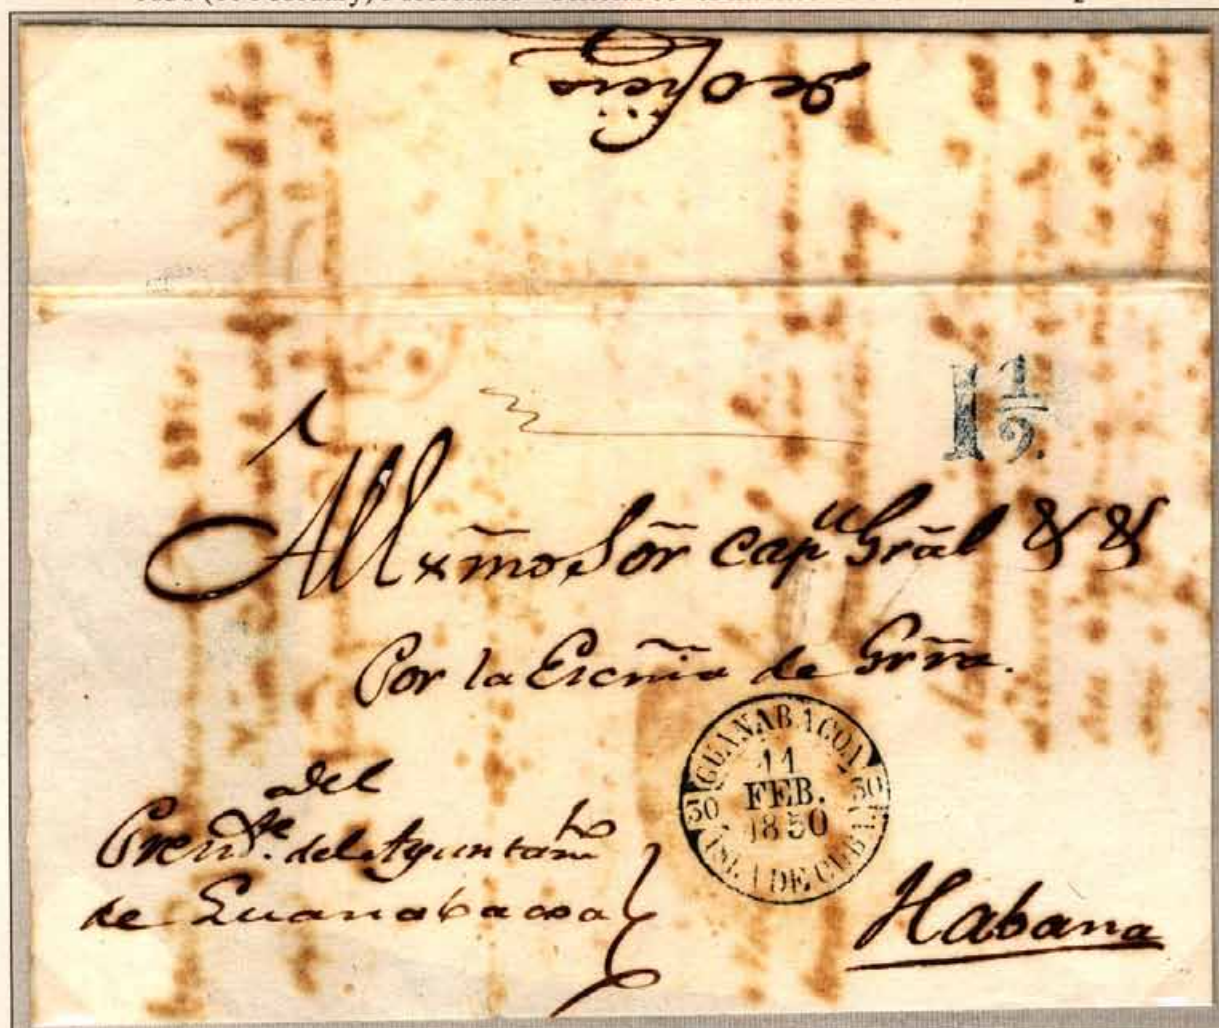 De Oficio
1 1/2.
Al Exm̃o Sor̃ Capⁿ Grãl & &
Por la Escñia de Grr̃a.
GUANABACOA
30 11 30
FEB.
1850
ISLA DE CUBA
Del
Presid.te del Ayuntam.to
de Guanabacoa
Habana